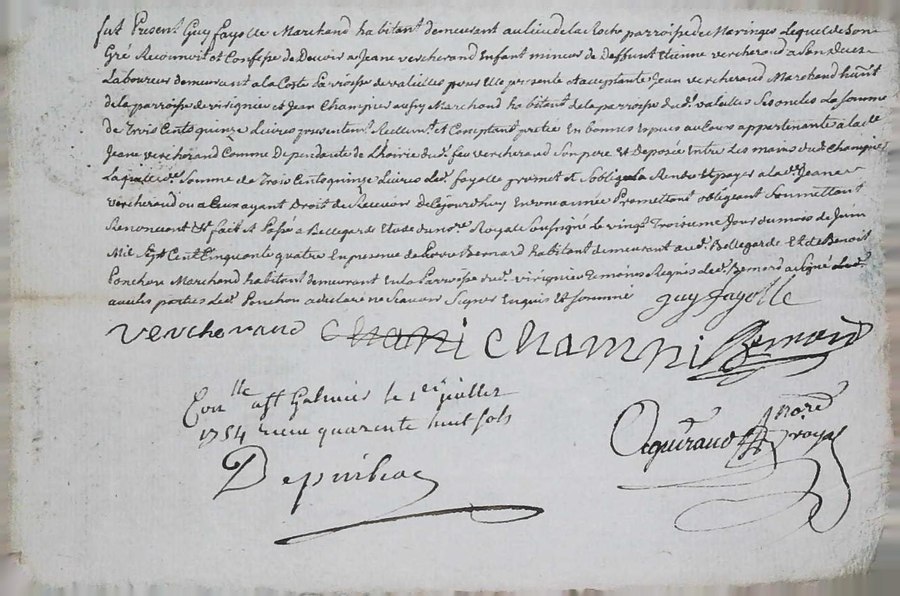 fut Present Guy fayolle Marchand habitant demeurant au lieu de la Roche parroisse de Maringes Lequel de Son
Gré Reconnoit et Confesse de Devoir a Jeane vercherand Enfant mineur de deffunt Etienne vercherand
Laboureur demeurant a la Coste Parroisse de valeilles pour Elle presente et acceptante Jean vercherand Marchand habt
de la parroisse de virignieu et Jean Champier aussy Marchand habitant de la parroisse dud. valeilles Ses oncles La Somme
de Trois Cents quinze Livres presentemt Reellemt et Comptant pretée En bonnes Espèces au Cours appartenante a lad.
Jeane vercherand Comme Dependante de Lhoirie dud. feu vercherand Son pere Et Deposée Entre Les mains dud. Champier
Laquelle Somme de Trois Cents quinze Livres led. fayolle promet et Soblige La Rendre Et payer a lad. Jeane
vercherand ou a Ceux ayant Droit de Recevoir De Ce jourdhuy En une année Promettant obligeant Soumettant
Renoncant &c fait et Passé a Bellegarde Etude du nore Royal Soussigné le vingt Troisieme Jour du mois de Juin
Mil Sept Cent Cinquante quatre En presence de Bernard habitant demeurant aud. Bellegarde Et de Benoit
Ponchon Marchand habitant demeurant En la Parroisse de virignieu Temoins Requis led. Bernard a Signé
avec les parties led. Ponchon a declaré ne Scavoir Signer Enquis Et Sommé guy fayolle
vercherand chani champi Bernard
Conlle a St Galmier le 1er juillet
1754 receu quarente huit sols
Depuibac
nore royal